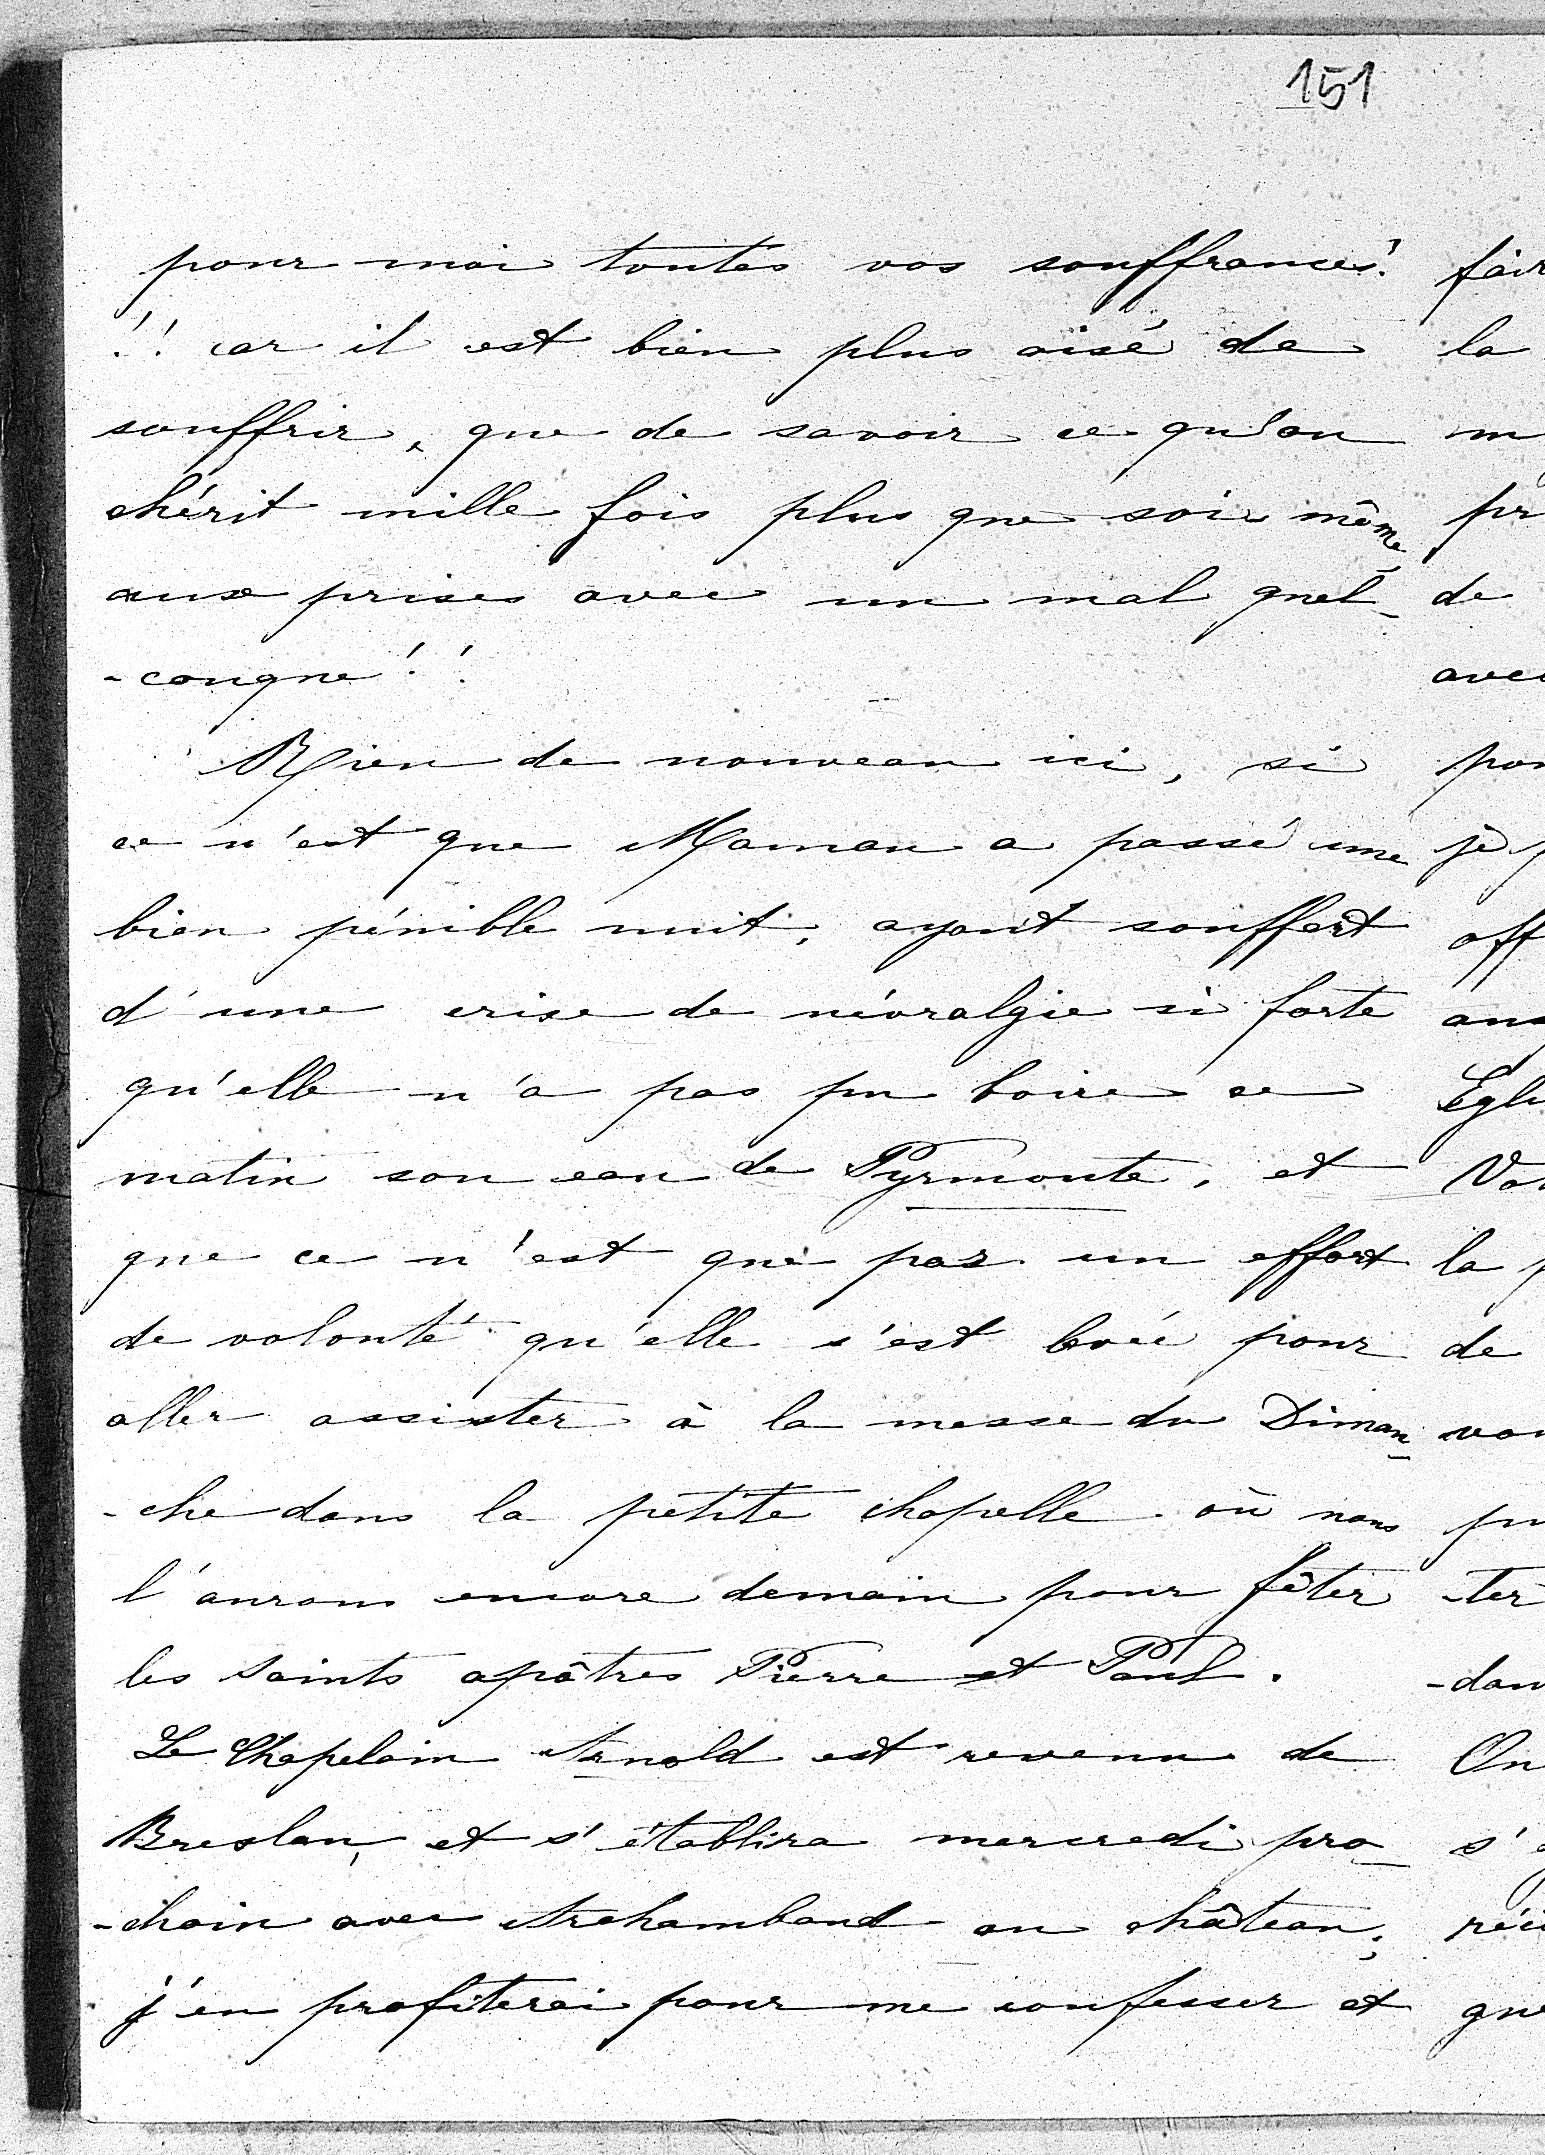 151
pour moi toutes vos souffrances!
!! car il est bien plus aisé de
souffrir, que de savoir ce qu'on
chérit mille fois plus que soi même
aux prises avec un mal quel-
-conque!!
Rien de nouveau ici, si
ce n'est que Maman a passé une
bien pénible nuit, ayant souffert
d'une crise de névralgie si forte
qu'elle n'a pas pu boire ce
matin son eau de Pyrmonte, et
que ce n'est que par un effort
de volonté qu'elle s'est levée pour
aller assister à la messe du Diman-
-che dans la petite chapelle où nous
l'aurons encore demain pour fêter
les Saints apôtres Pierre et Paul.
Le Chapelain Arnold est revenu de
Breslau, et s'établira mercredi pro-
-chain avec Archambaud au château;
j'en profiterai pour me confesser et
fair
la
m
pr
de
avec
pou
je p
off
ang
Egli
Vo
la p
de
vou
pu
-ter
-dan
On
s'
que